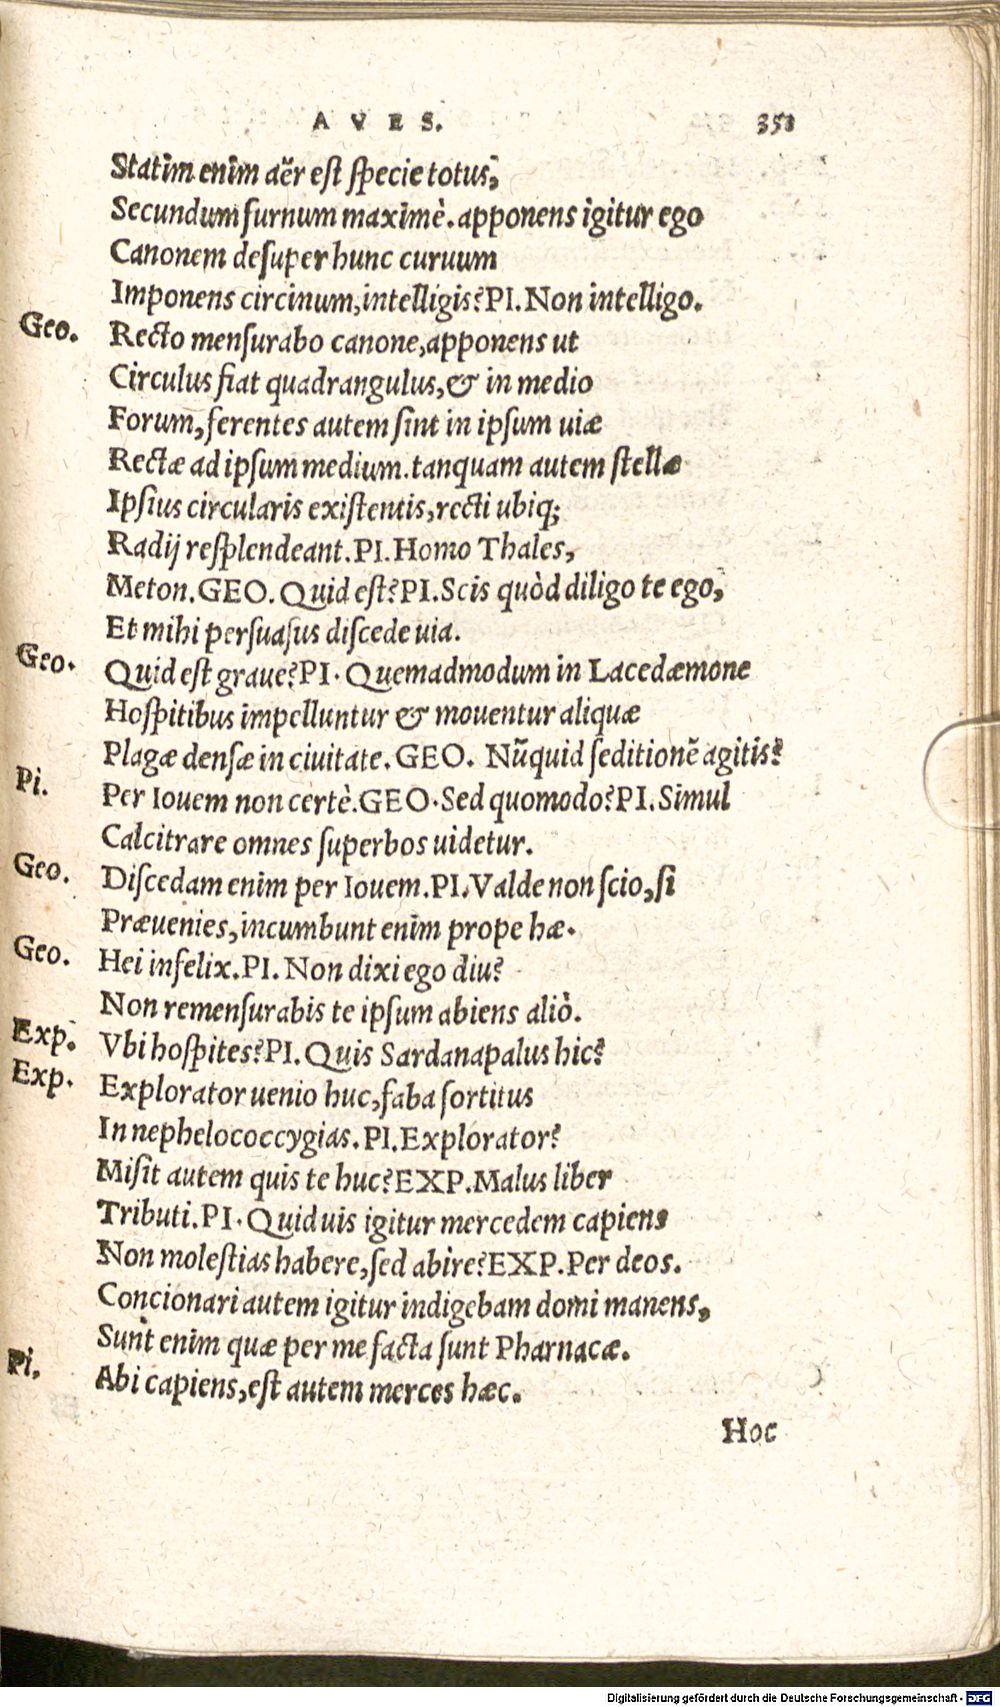 AVES. 351
Statim enim aër est specie totus,
Secundum furnum maximè. apponens igitur ego
Canonem desuper hunc curuum
Imponens circinum, intelligis? PI. Non intelligo.
Geo. Recto mensurabo canone, apponens ut
Circulus fiat quadrangulus, & in medio
Forum, ferentes autem sint in ipsum uiæ
Rectæ ad ipsum medium. tanquam autem stellæ
Ipsius circularis existentis, recti ubiq;
Radij resplendeant. PI. Homo Thales,
Meton. GEO. Quid est? PI. Scis quòd diligo te ego,
Et mihi persuasus discede uia.
Geo. Quid est graue? PI. Quemadmodum in Lacedæmone
Hospitibus impelluntur & mouentur aliquæ
Plagæ densæ in ciuitate. GEO. Nũquid seditionẽ agitis?
Pi. Per Iouem non certè. GEO. Sed quomodo? PI. Simul
Calcitrare omnes superbos uidetur.
Geo. Discedam enim per Iouem. PI. Valde non scio, si
Præuenies, incumbunt enim prope hæ.
Geo. Hei infelix. PI. Non dixi ego diu?
Non remensurabis te ipsum abiens aliò.
Exp. Vbi hospites? PI. Quis Sardanapalus hic?
Exp. Explorator uenio huc, faba sortitus
In nephelococcygias. PI. Explorator?
Misit autem quis te huc? EXP. Malus liber
Tributi. PI. Quid uis igitur mercedem capiens
Non molestias habere, sed abire? EXP. Per deos.
Concionari autem igitur indigebam domi manens,
Sunt enim quæ per me facta sunt Pharnacæ.
Pi. Abi capiens, est autem merces hæc.
Hoc
Digitalisierung gefördert durch die Deutsche Forschungsgemeinschaft - DFG